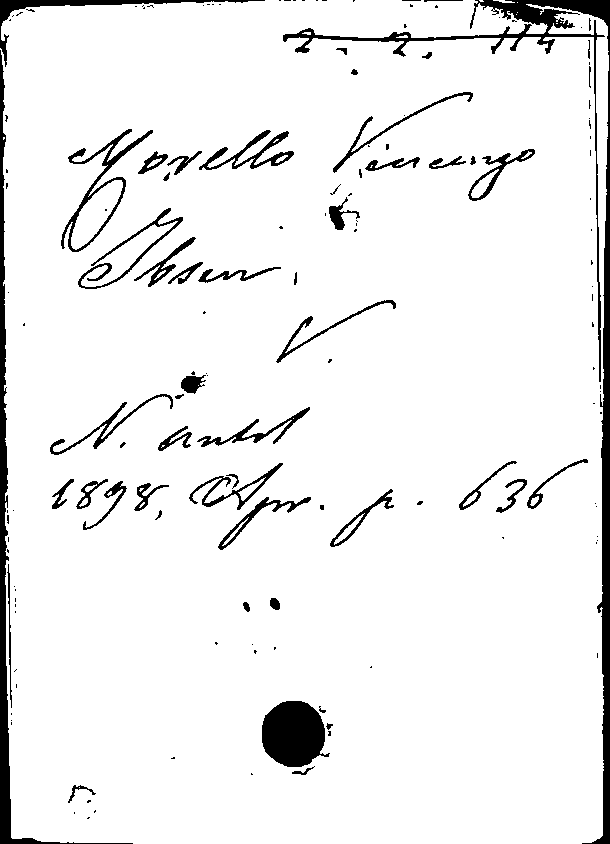 2. 2. 114
Morello Vincenzo
Ibsen.
V.
N. antol
1898, Apr. p. 636